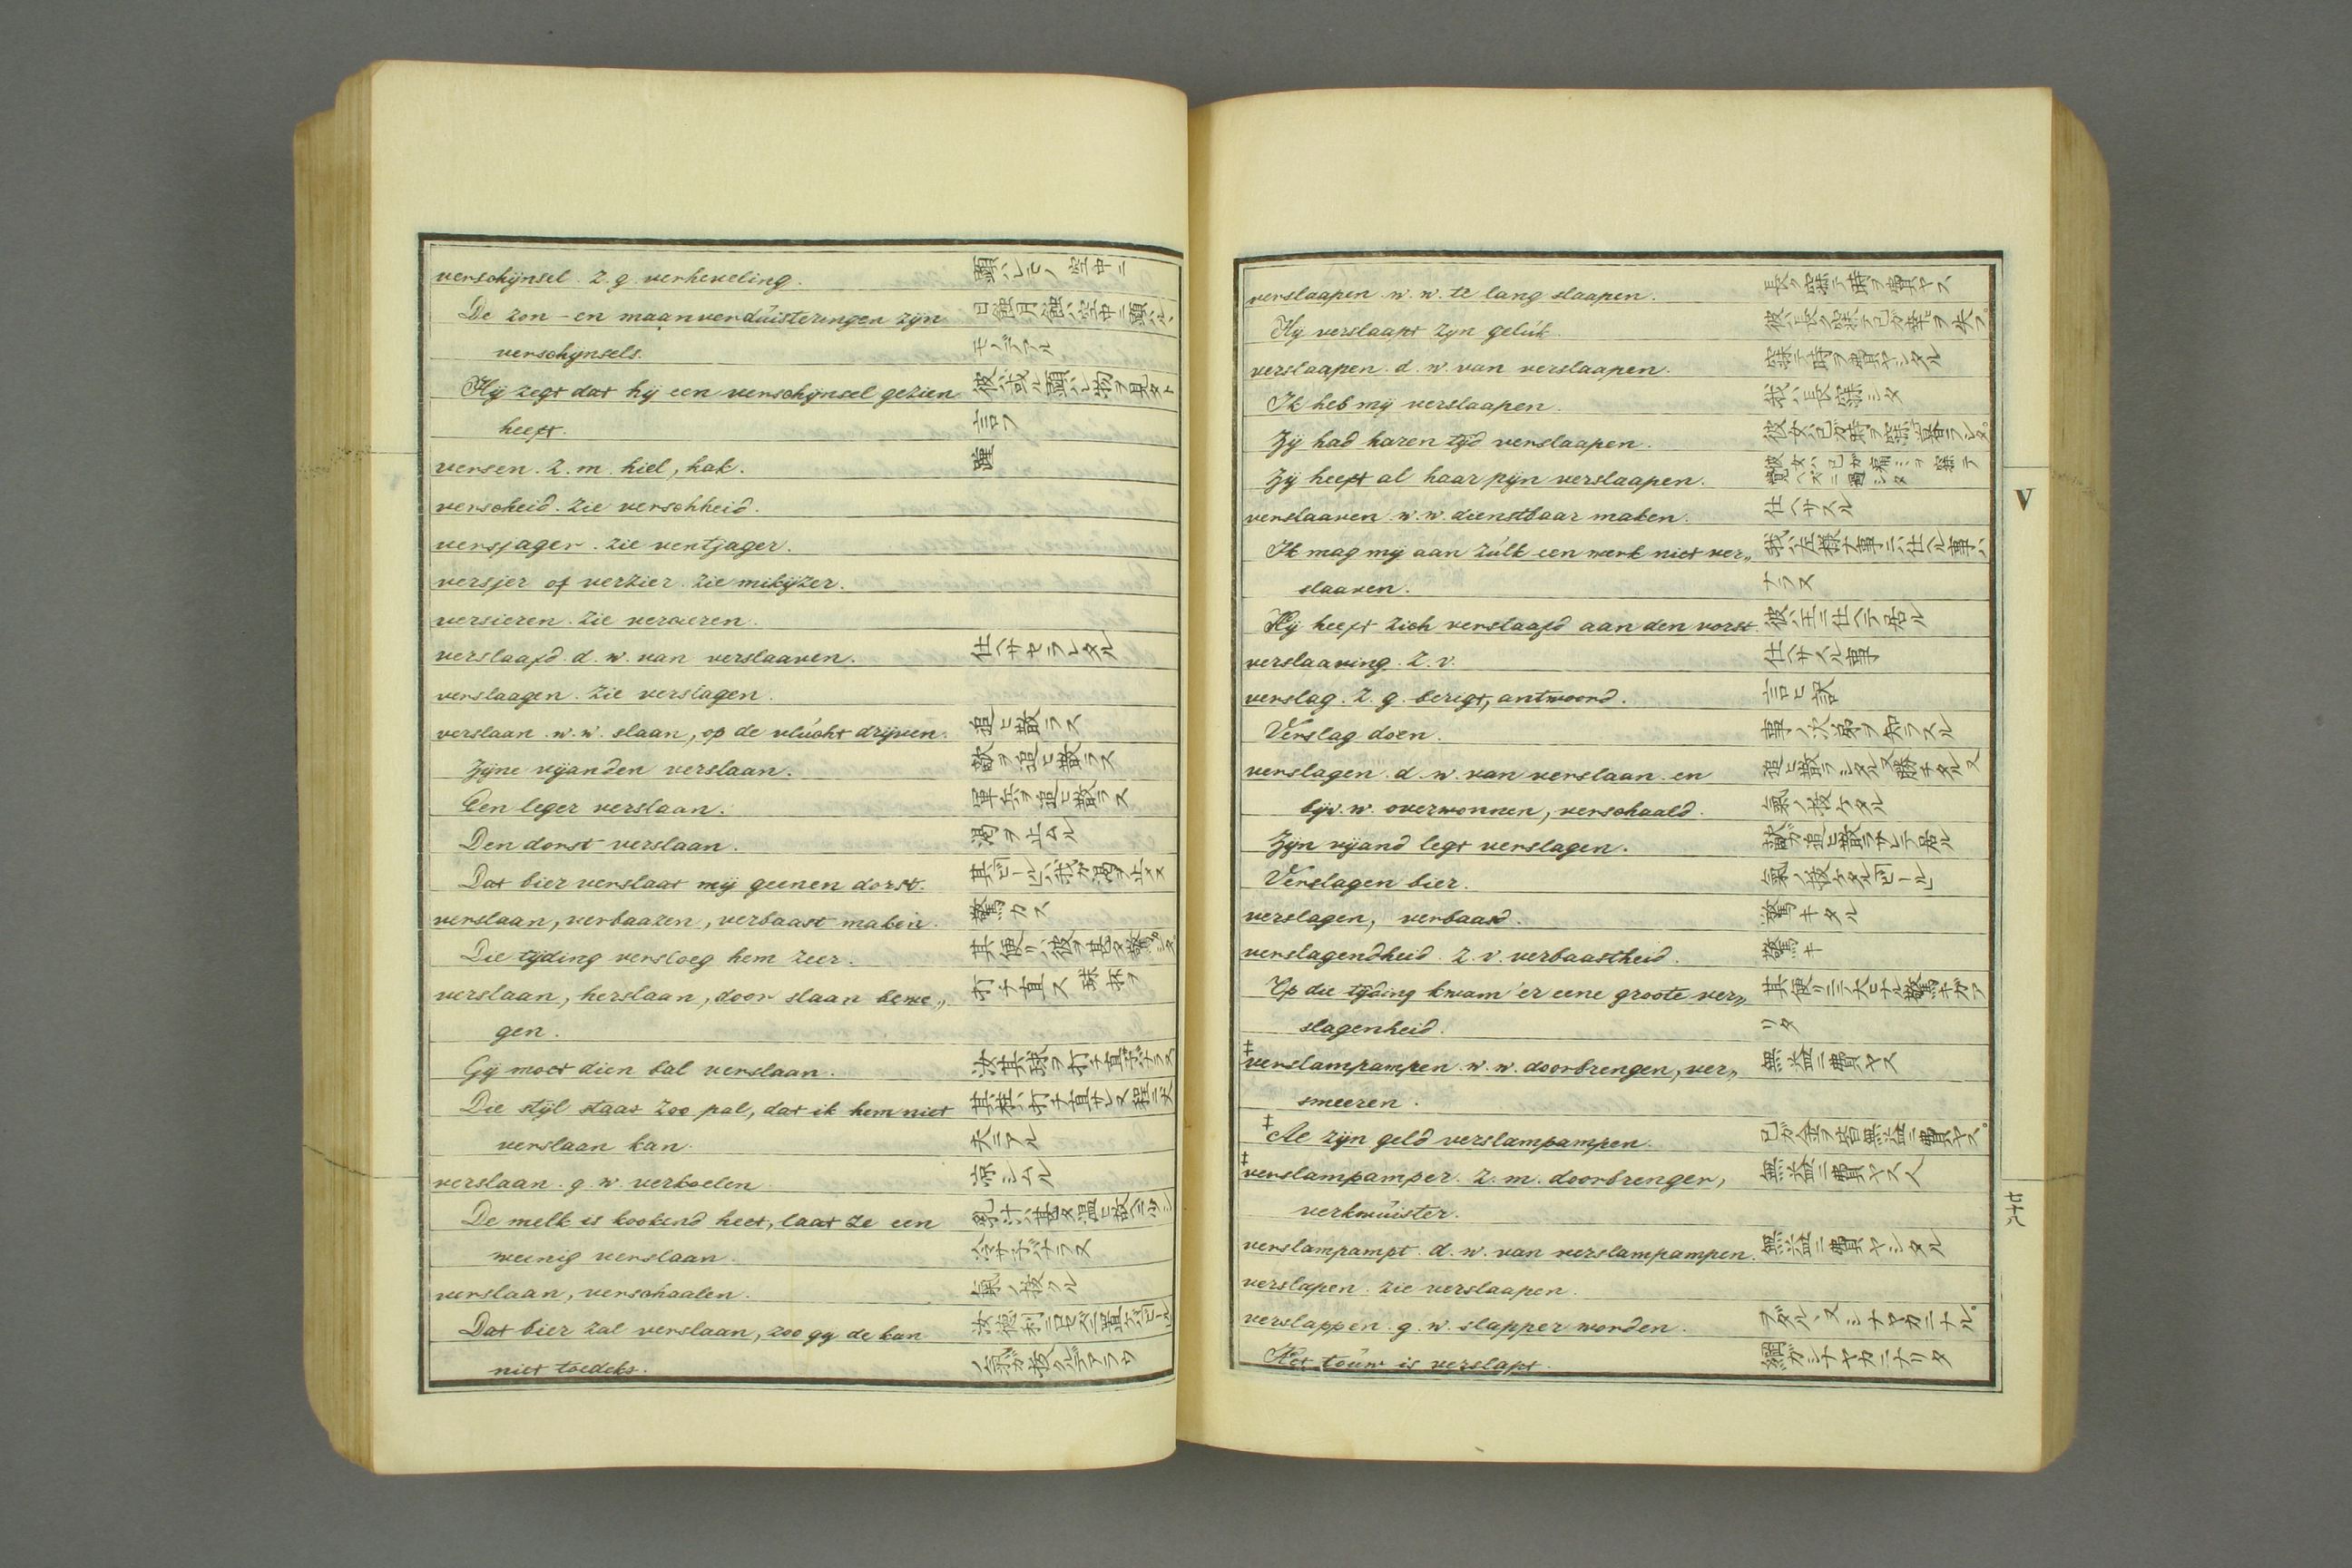 verschijnsel. z. g. verheveling. 顕ハレモノ 空中ニ
De zon- en maanverdúisteringen zijn 日蝕月蝕ハ空中ニ顕ハルヽ
verschijnsels. モノデアル
Hij zegt dat hij een verschijnsel gezien 彼ハ或ル顕ハレ物ヲ見タト
heeft. 言フ
versen. z. m. hiel, hak. 踵
verscheid. zie verschheid.
versjager. zie ventjager.
versjer of verzier. zie mikijzer.
versieren. zie vercieren.
verslaafd. d. w. van verslaaven. 仕ヘサセラレタル
verslaagen. zie verslagen.
verslaan. w. w. slaan, op de vlúcht drijven. 追ヒ散ラス
Zijne vijanden verslaan. 敵ヲ追ヒ散ラス
Een leger verslaan. 軍兵ヲ追ヒ散ラス
Den dorst verslaan. 渇ヲ止ムル
Dat bier verslaat mij geenen dorst. 其ビールハ我ガ渇ヲ止メヌ
verslaan, verbaazen, verbaast maken. 驚カス
Die tijding versloeg hem zeer. 其便リハ彼ヲ甚タ驚カシタ
verslaan, herslaan, door slaan bewe„ 打チ直ス 球杯ヲ
gen.
Gij moet dien bal verslaan. 汝其球ヲ打チ直サ子バナラヌ
Die stijl staat zoo pal, dat ik hem niet 其柱ハ打チ直サレヌ程ニ丈
verslaan kan. 夫ニアル
verslaan. g. w. verkoelen. 凉シムル
De melk is kookend heet, laat ze een 乳汁ハ甚タ温ヒ故ニ少シ
weinig verslaan. 冷サ子バナラヌ
verslaan, verschaalen. 氣ノ抜クル
Dat bier zal verslaan, zoo gij de kan 汝徳利ニ口ヲセズニ置ケバビール
niet toedekt. ノ氣ガ抜クルデアラウ
verslaapen. w. w. te lang slaapen. 長ク寐テ時ヲ費ヤス
Hij verslaapt zijn gelúk. 彼ハ長ク寐テ己ガ幸ヲ失フ
verslaapen. d. w. van verslaapen. 寐テ時ヲ費ヤシタル
Ik heb mij verslaapen. 我ハ長寐シタ
Zij had haren tijd verslaapen. 彼女ハ己ガ時ヲ寐暮ラシタ
Zij heeft al haar pijn verslaapen. 彼女ハ己ガ痛ミヲ寐テ覚ヘズニ過シタ
verslaaven. w. w. dienstbaar maken. 仕ヘサスル
Ik mag mij aan zúlk een werk niet ver„ 我ハ左様ナ事ニハ仕ヘル事ハ
slaaven. ナラヌ
Hij heeft zich verslaafd aan den vorst. 彼ハ王ニ仕ヘテ居ル
verslaaving. z. v. 仕ヘサスル事
verslag. z. g. berigt, antwoord. 言ヒ訳
Verslag doen. 事ノ次第ヲ知ラスル
verslagen. d. w. van verslaan. en 追ヒ散ラシタル 又勝チタル 又
bijv. w. overwonnen, verschaald. 氣ノ抜ケタル
Zijn vijand legt verslagen. 敵ガ追ヒ散ラサレテ居ル
Verslagen bier. 氣ノ抜ケタルビール
verslagen, verbaasd. 驚キタル
verslagendheid. z. v. verbaastheid. 驚キ
Op die tijding kwam'er eene groote ver„ 其便リニ大ヒナル驚キガア
slagenheid. リタ
‡verslampampen. w. w. doorbrengen, ver„ 無益ニ費ヤス
smeeren.
‡Al zijn geld verslampampen. 己ガ金ヲ皆無益ニ費ヤス
‡verslampamper. z. m. doorbrenger, 無益ニ費ヤス人
verkwúister.
verslampampt. d. w. van verslampampen. 無益ニ費ヤシタル
verslapen. zie verslaapen.
verslappen. g. w. slapper worden. タルム 又シナヤカニナル
Het toúw is verslapt. 綱ガシナヤカニナリタ
V
七十八